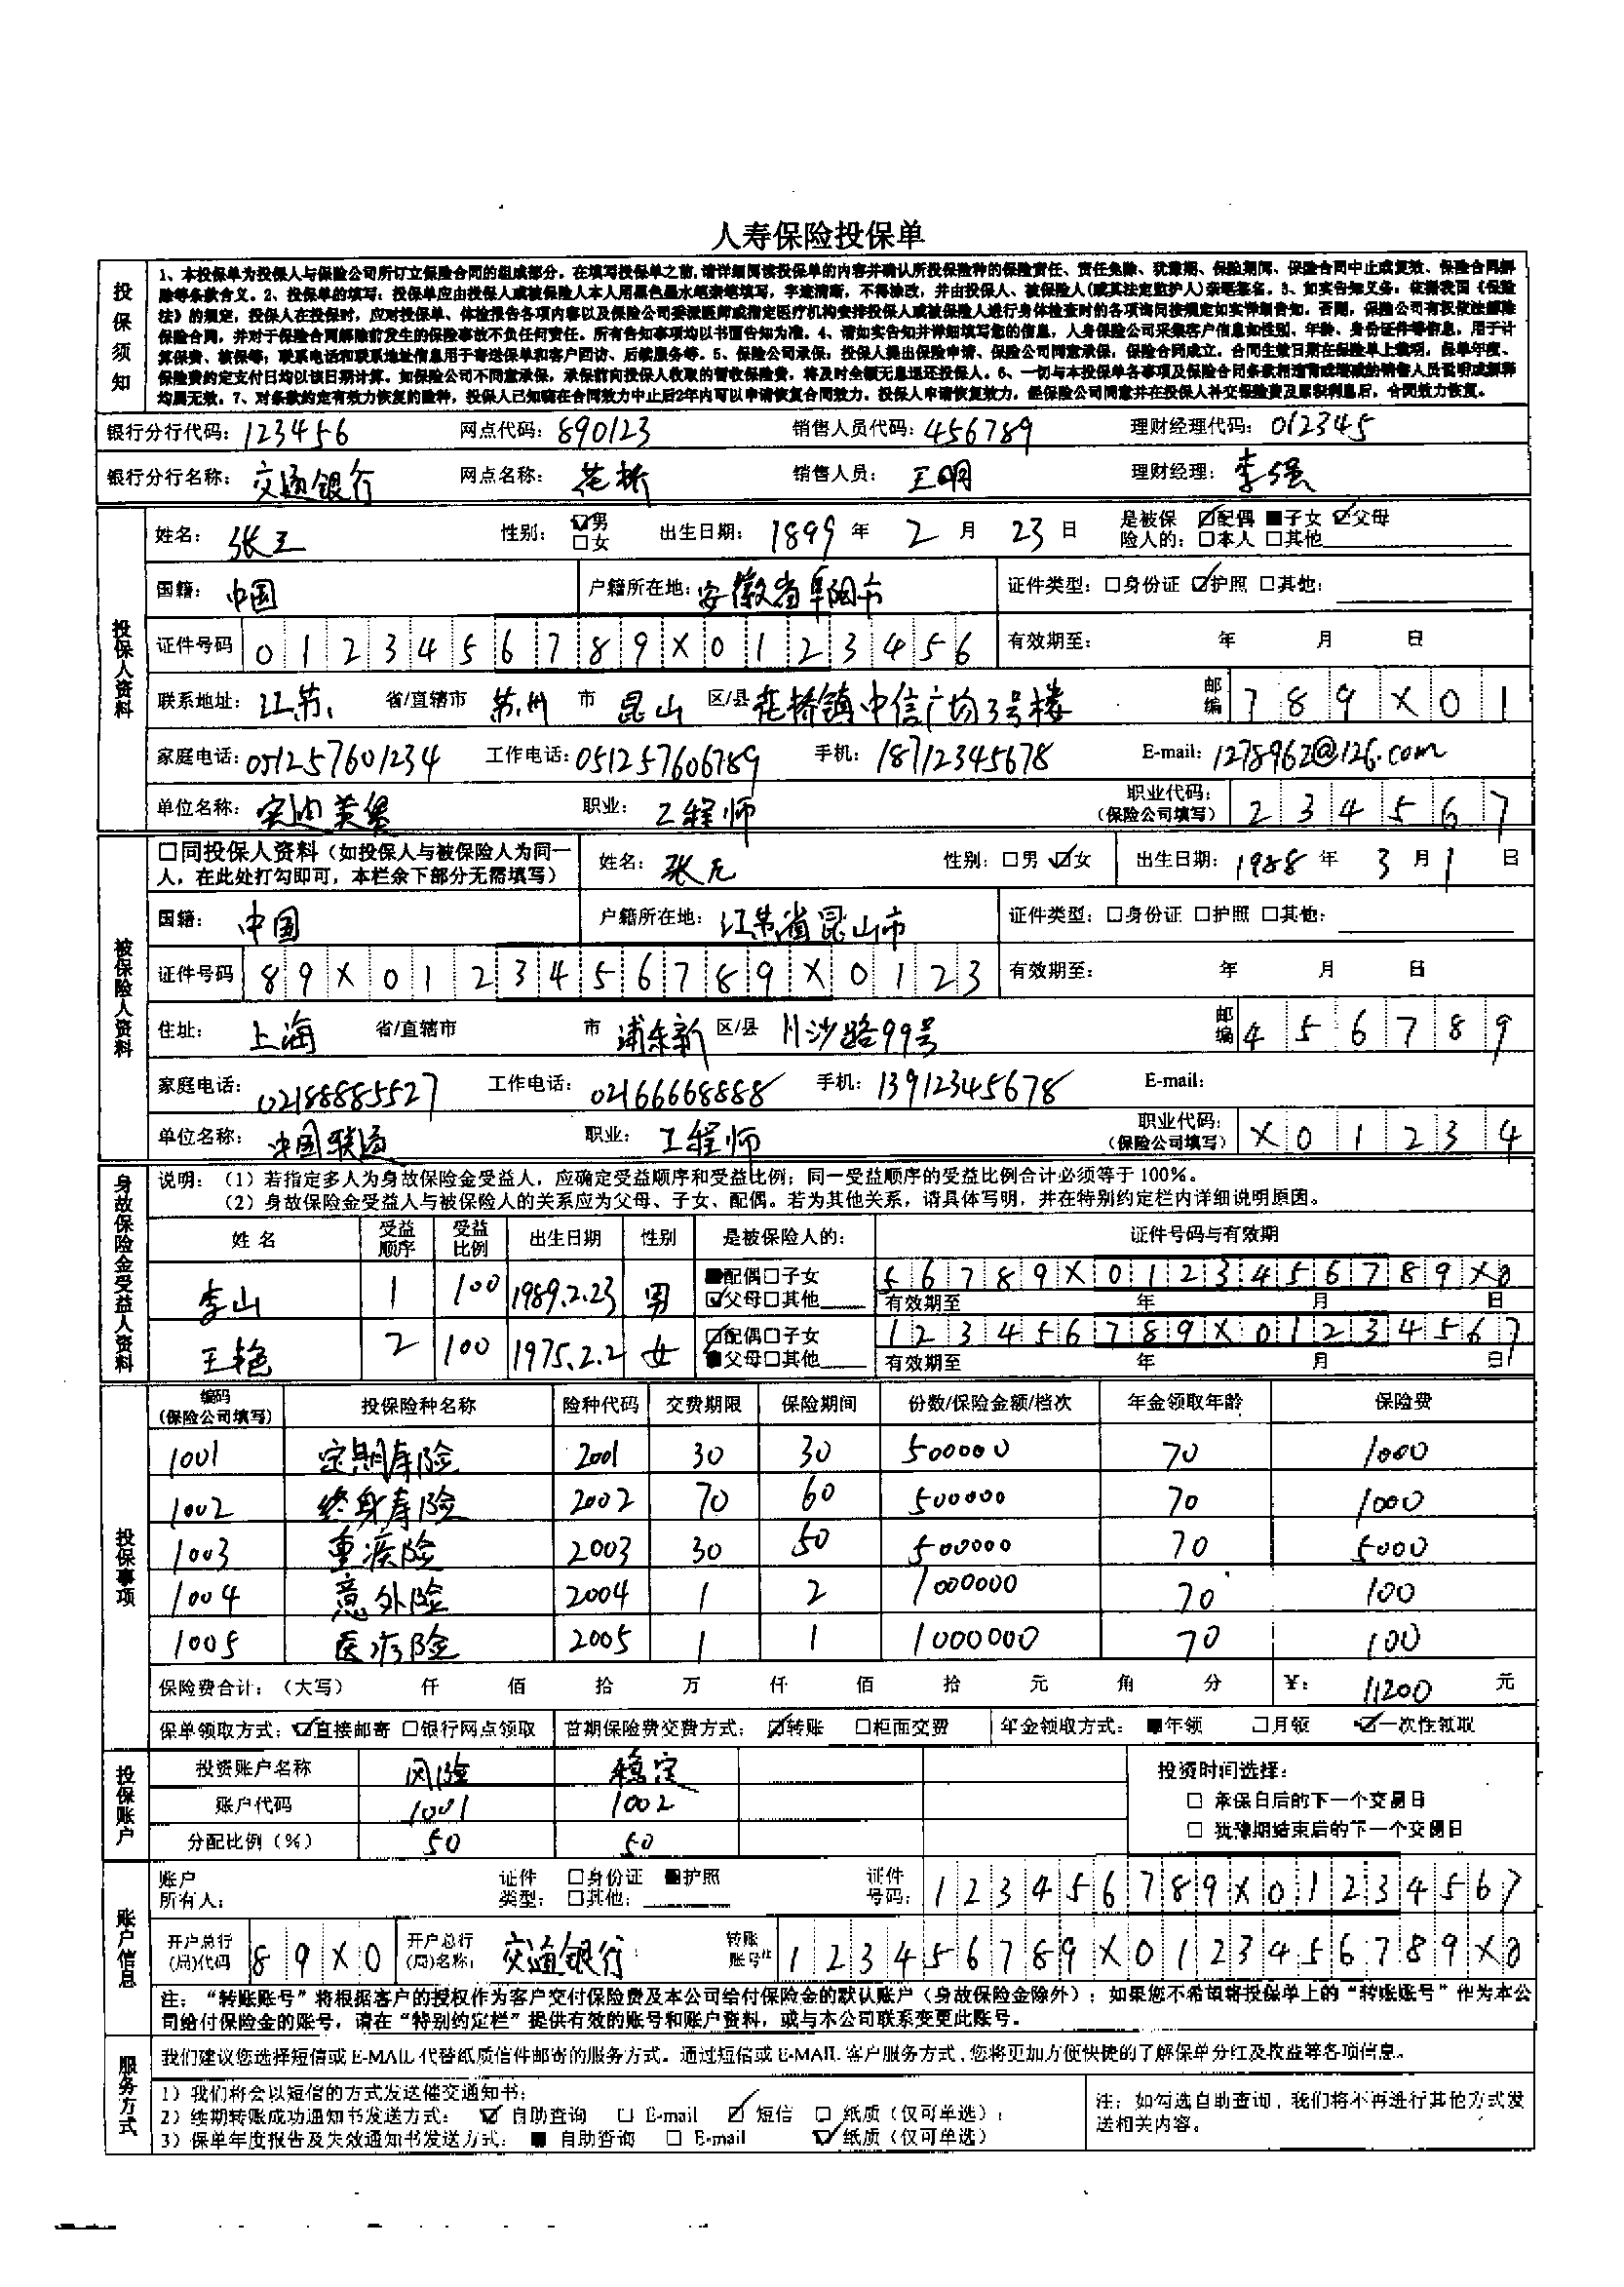 人寿保险投保单
投保须知
1、本投保单为投保人与保险公司所订立保险合同的组成部分。在填写投保单之前,请详细阅读投保单的内容并确认所投保险种的保险责任、责任免除、犹豫期、保险期间、保险合同中止或复效、保险合同解
除等条款含义。2、投保单的填写:投保单应由投保人或被保险人本人用黑色墨水笔亲笔填写,字迹清晰,不得涂改,并由投保人、被保险人(或其法定监护人)亲笔签名。3、如实告知义务:依据我国《保险
法》的规定,投保人在投保时,应对投保单、体检报告各项内容以及保险公司委派医师或指定医疗机构安排投保人或被保险人进行身体检查时的各项询问按规定如实详细告知。否则,保险公司有权依法解除
保险合同,并对于保险合同解除前发生的保险事故不负任何责任。所有告知事项均以书面告知为准。4、请如实告知并详细填写您的信息,人身保险公司采集客户信息如性别、年龄、身份证件等信息,用于计
算保费、核保等;联系电话和联系地址信息用于寄送保单和客户回访、后续服务等。5、保险公司承保:投保人提出保险申请、保险公司同意承保,保险合同成立。合同生效日期在保险单上载明,保单年度、
保险费约定支付日均以该日期计算。如保险公司不同意承保,承保前向投保人收取的暂收保险费,将及时全额无息退还投保人。6、一切与本投保单各事项及保险合同条款相违背或增减的销售人员说明或解释
均属无效。7、对条款约定有效力恢复的险种,投保人已知晓在合同效力中止后2年内可以申请恢复合同效力。投保人申请恢复效力,经保险公司同意并在投保人补交保险费及累积利息后,合同效力恢复。
银行分行代码: 123456 网点代码: 890123 销售人员代码: 456789 理财经理代码: 012345
银行分行名称: 交通银行 网点名称: 花桥 销售人员: 王明 理财经理: 李强
投保人资料
姓名: 张三 性别: ☑男 □女 出生日期: 1899 年 2 月 23 日 是被保险人的: ☑配偶 ■子女 ☑父母 □本人 □其他
国籍: 中国 户籍所在地: 安徽省阜阳市 证件类型: □身份证 ☑护照 □其他:
证件号码 0 1 2 3 4 5 6 7 8 9 X 0 1 2 3 4 5 6 有效期至: 年 月 日
联系地址: 江苏 省/直辖市 苏州 市 昆山 区/县 花桥镇中信广场3号楼 邮编 7 8 9 X 0 1
家庭电话: 051257601234 工作电话: 051257606789 手机: 18712345678 E-mail: 1278962@126.com
单位名称: 安迪美堡 职业: 工程师 职业代码: (保险公司填写) 2 3 4 5 6 7
被保险人资料
□同投保人资料(如投保人与被保险人为同一人,在此处打勾即可,本栏余下部分无需填写) 姓名: 张元 性别: □男 ☑女 出生日期: 1988 年 3 月 1 日
国籍: 中国 户籍所在地: 江苏省昆山市 证件类型: □身份证 □护照 □其他:
证件号码 8 9 X 0 1 2 3 4 5 6 7 8 9 X 0 1 2 3 有效期至: 年 月 日
住址: 上海 省/直辖市 市 浦东新 区/县 川沙路99号 邮编 4 5 6 7 8 9
家庭电话: 02188885527 工作电话: 02166668888 手机: 13912345678 E-mail:
单位名称: 中国联通 职业: 工程师 职业代码: (保险公司填写) X 0 1 2 3 4
身故保险金受益人资料
说明: (1)若指定多人为身故保险金受益人,应确定受益顺序和受益比例;同一受益顺序的受益比例合计必须等于100%。
(2)身故保险金受益人与被保险人的关系应为父母、子女、配偶。若为其他关系,请具体写明,并在特别约定栏内详细说明原因。
姓名 受益顺序 受益比例 出生日期 性别 是被保险人的: 证件号码与有效期
李山 1 100 1989.2.23 男 ■配偶□子女 ☑父母□其他 5 6 7 8 9 X 0 1 2 3 4 5 6 7 8 9 X 0
有效期至 年 月 日
王艳 2 100 1975.2.2 女 ☑配偶□子女 ■父母□其他 1 2 3 4 5 6 7 8 9 X 0 1 2 3 4 5 6 7
有效期至 年 月 日
投保事项
编码(保险公司填写) 投保险种名称 险种代码 交费期限 保险期间 份数/保险金额/档次 年金领取年龄 保险费
1001 定期寿险 2001 30 30 500000 70 1000
1002 终身寿险 2002 70 60 500000 70 1000
1003 重疾险 2003 30 50 500000 70 5000
1004 意外险 2004 1 2 1000000 70 100
1005 医疗险 2005 1 1 1000000 70 100
保险费合计:(大写) 仟 佰 拾 万 仟 佰 拾 元 角 分 ¥: 11200 元
保单领取方式: ☑直接邮寄 □银行网点领取 首期保险费交费方式: ☑转账 □柜面交费 年金领取方式: ■年领 □月领 ☑一次性领取
投保账户
投资账户名称 风险 稳定 投资时间选择:
账户代码 1001 1002 □ 承保日后的下一个交易日
分配比例(%) 50 50 □ 犹豫期结束后的下一个交易日
账户信息
账户所有人: 证件类型: □身份证 ■护照 □其他: 证件号码: 1 2 3 4 5 6 7 8 9 X 0 1 2 3 4 5 6 7
开户总行(局)代码 8 9 X 0 开户总行(局)名称: 交通银行 转账账号 1 2 3 4 5 6 7 8 9 X 0 1 2 3 4 5 6 7 8 9 X 0
注:“转账账号”将根据客户的授权作为客户交付保险费及本公司给付保险金的默认账户(身故保险金除外);如果您不希望将投保单上的“转账账号”作为本公
司给付保险金的账号,请在“特别约定栏”提供有效的账号和账户资料,或与本公司联系变更此账号。
服务方式
我们建议您选择短信或E-MAIL代替纸质信件邮寄的服务方式。通过短信或E-MAIL客户服务方式,您将更加方便快捷的了解保单分红及收益等各项信息。
1)我们将会以短信的方式发送催交通知书;
2)续期转账成功通知书发送方式: ☑ 自助查询 □ E-mail ☑ 短信 □ 纸质(仅可单选);
3)保单年度报告及失效通知书发送方式: ■ 自助查询 □ E-mail ☑纸质(仅可单选)
注:如勾选自助查询,我们将不再进行其他方式发
送相关内容。